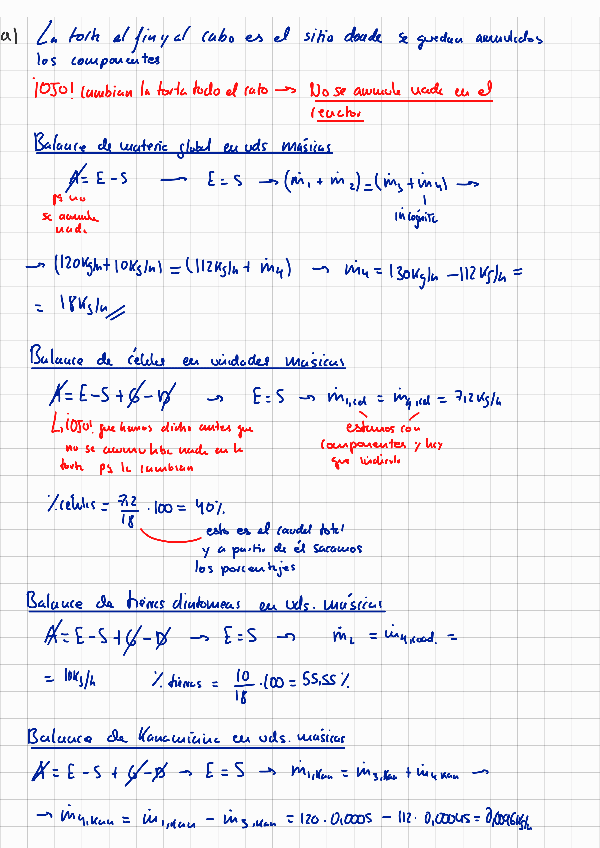 a) La torta al fin y al cabo es el sitio donde se quedan acumulados
los componentes
¡OJO! Cambian la torta todo el rato → No se acumula nada en el
reactor
Balance de materia global en uds. másicas
A = E - S → E = S → (ṁ₁ + ṁ₂) = (ṁ₃ + ṁ₄) →
ps no
se acumula
nada
incógnita
→ (120 Kg/h + 10 Kg/h) = (112 Kg/h + ṁ₄) → ṁ₄ = 130 Kg/h - 112 Kg/h =
= 18 Kg/h
Balance de células en unidades másicas
A = E - S + G - D → E = S → ṁ₁,cel = ṁ₄,cel = 7,2 Kg/h
↳ ¡OJO! que hemos dicho antes que
no se acumulaba nada en la
torta ps la cambian
estamos con
componentes y hay
que indicarlo
% células = 7,2/18 · 100 = 40%
esto es el caudal total
y a partir de él sacamos
los porcentajes
Balance de tierras diatomeas en uds. másicas
A = E - S + G - D → E = S → ṁ₂ = ṁ₄,coad. =
= 10 Kg/h % tierras = 10/18 · 100 = 55,55 %
Balance de Kanamicina en uds. másicas
A = E - S + G - D → E = S → ṁ₁,Kan = ṁ₃,Kan + ṁ₄,Kan →
→ ṁ₄,Kan = ṁ₁,Kan - ṁ₃,Kan = 120 · 0,0005 - 112 · 0,00045 = 0,0096 Kg/h